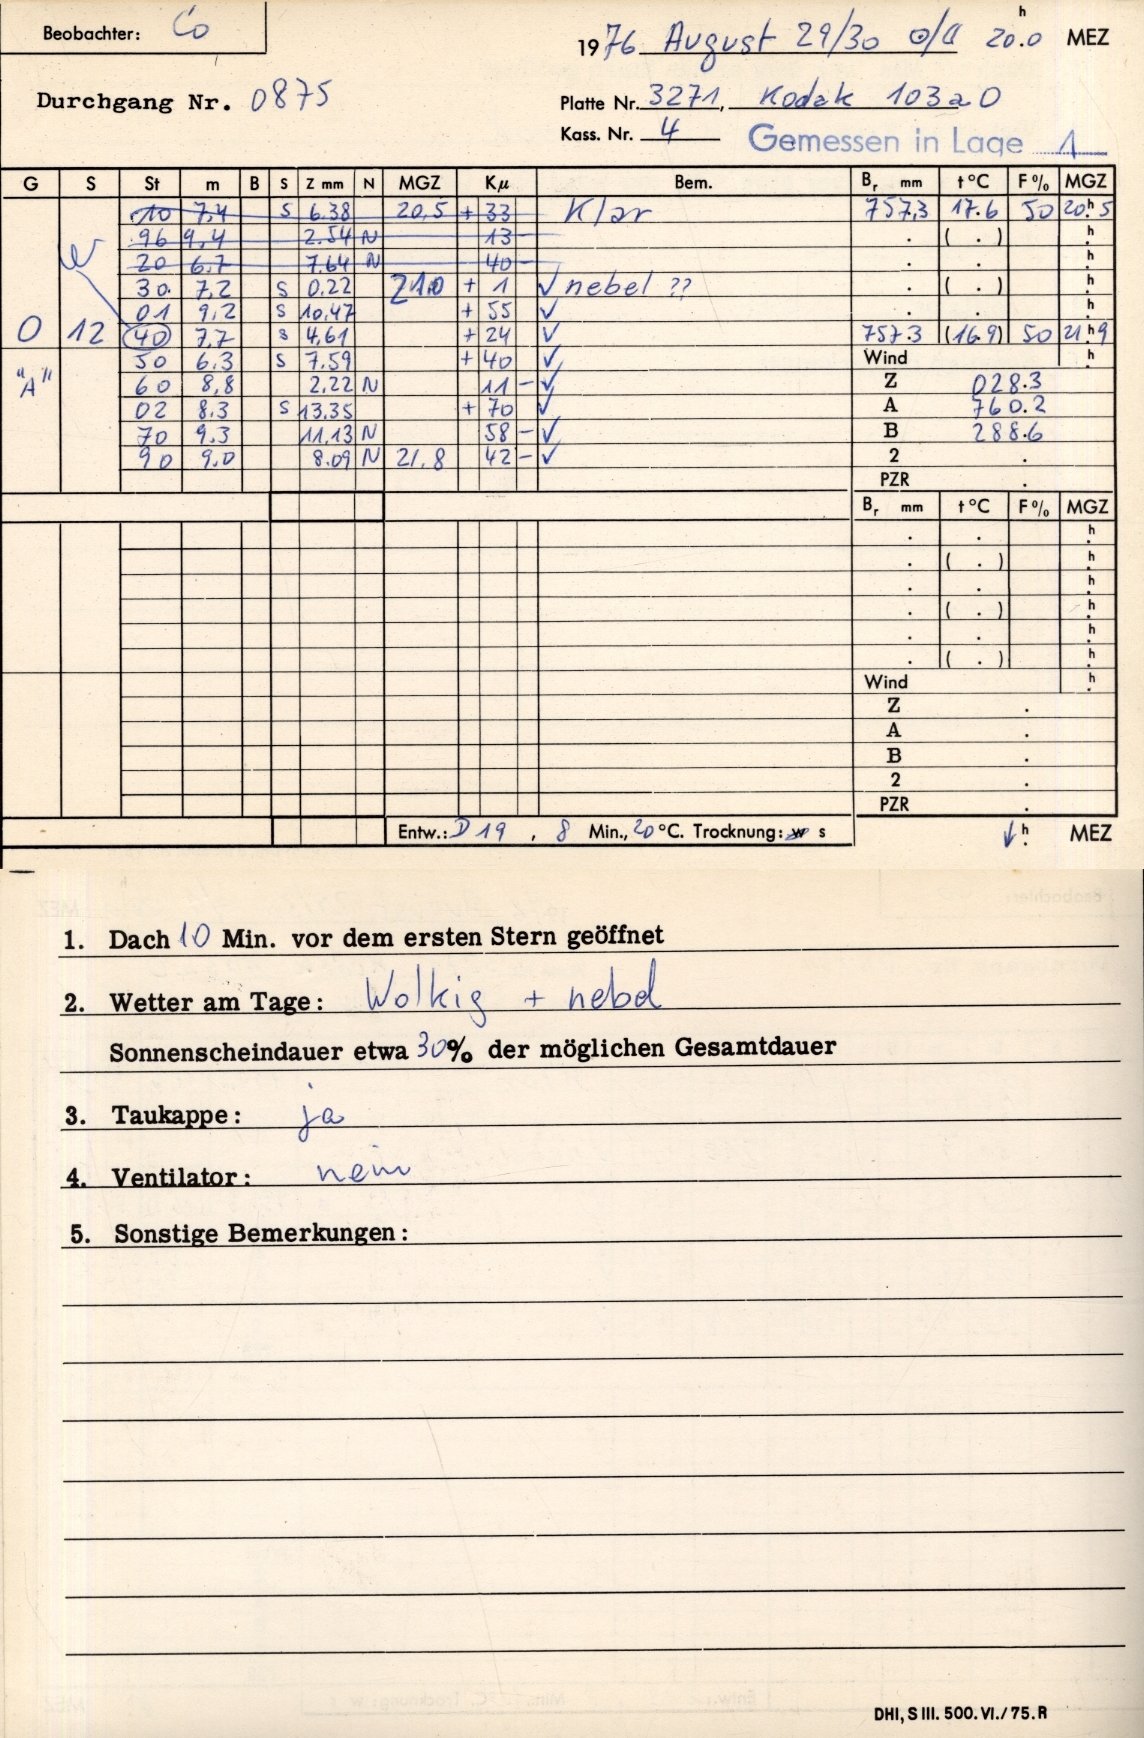 Beobachter: Co
1976 August 29/30 ⊙/☾ 20.0 h MEZ
Durchgang Nr. 0875
Platte Nr. 3271, Kodak 103aO
Kass. Nr. 4 Gemessen in Lage 1
G S St m B S Z mm N MGZ Kμ Bem. Br mm t°C F% MGZ
10 7,4 S 6.38 20,5 + 33 Klar 757,3 17.6 50 20h5
96 9,4 2.54 N 13 - . ( . ) h
20 6.7 7.64 N 40 - . . h
30 7,2 S 0.22 21.0 + 1 √ nebel ?? . ( . ) h
01 9,2 S 10,47 + 55 √ . . h
0 12 40 7,7 S 4,61 + 24 √ 757.3 (16.9) 50 21h9
50 6,3 S 7.59 + 40 √ Wind h
"A" 60 8,8 2,22 N 11 - √ Z 028.3
02 8.3 S 13,35 + 70 √ A 760.2
70 9.3 11,13 N 58 - √ B 288.6
90 9,0 8.09 N 21,8 42 - √ 2 .
PZR .
Br mm t°C F% MGZ
. . h
. ( . ) h
. . h
. ( . ) h
. . h
. ( . ) h
Wind h
Z .
A .
B .
2 .
PZR .
Entw.: D 19 , 8 Min., 20 °C. Trocknung: w s ↓ h. MEZ
1. Dach 10 Min. vor dem ersten Stern geöffnet
2. Wetter am Tage: Wolkig + nebel
Sonnenscheindauer etwa 30% der möglichen Gesamtdauer
3. Taukappe: ja
4. Ventilator: nein
5. Sonstige Bemerkungen:
DHI, S III. 500. VI./75. R